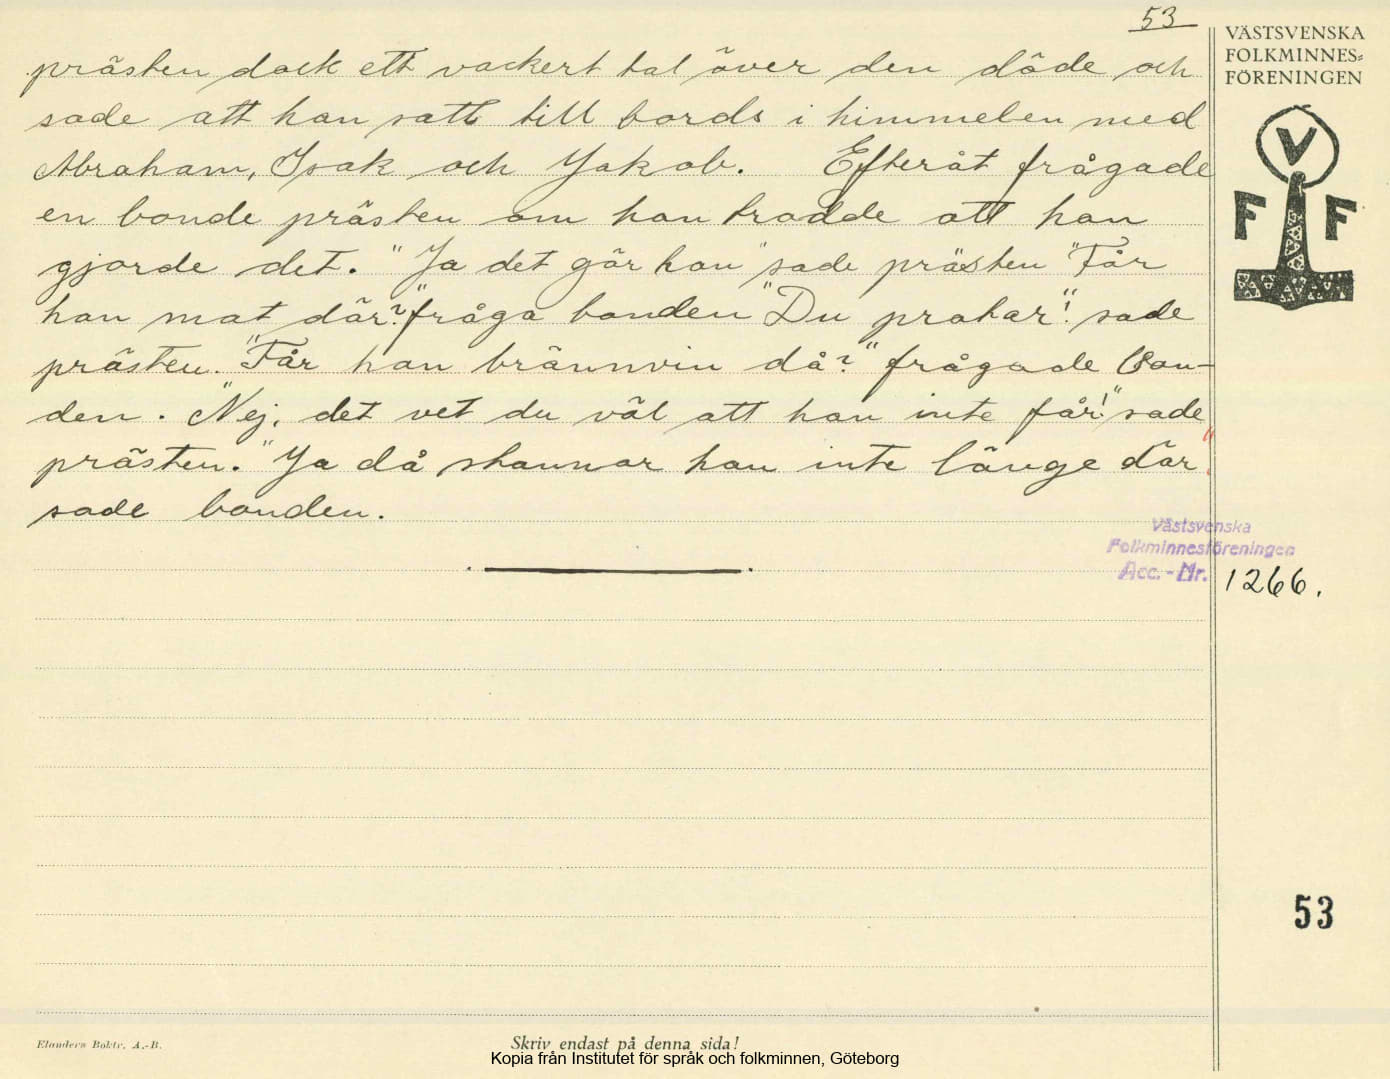 53
VÄSTSVENSKA
FOLKMINNES=
FÖRENINGEN
prästen dock ett vackert tal över den döde och
sade att han satt till bords i himmelen med
Abraham, Isak och Jakob. Efteråt frågade
en bonde prästen om han trodde att han
gjorde det. "Ja det gör han" sade prästen "Får
han mat där?" fråga bonden "Du prakar"! sade
prästen. "Får han brännvin då?" frågade Bon-
den. "Nej, det vet du väl att han inte får!" sade
prästen. "Ja då stannar han inte länge där".
sade bonden.
V
F F
Västsvenska
Folkminnesföreningen
Acc. - Nr. 1266.
53
Elanders Boktr. A.-B.
Skriv endast på denna sida!
Kopia från Institutet för språk och folkminnen, Göteborg